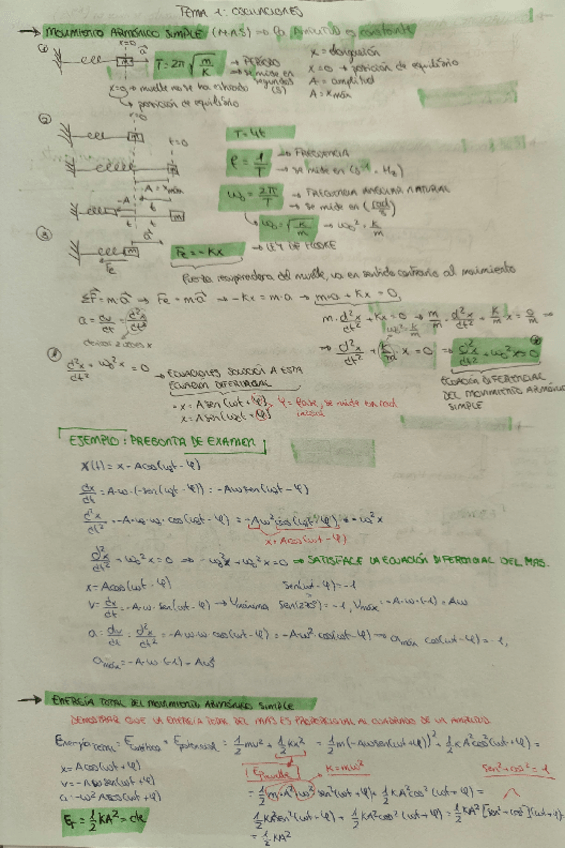 TEMA 1: OSCILACIONES
→ MOVIMIENTO ARMÓNICO SIMPLE (M.A.S) → La Amplitud es constante
① x=0 a⃗
T = 2π√(m/K) → PERÍODO
→ se mide en segundos (s)
x = elongación
x=0 → posición de equilibrio
A = amplitud
A = xmáx
x=0 → muelle no se ha estirado
→ posición de equilibrio
② x=0 t=0
T = 4t
f = 1/T → FRECUENCIA
→ se mide en (s⁻¹ = Hz)
A = xmáx
ω₀ = 2π/T → FRECUENCIA ANGULAR NATURAL
→ se mide en (rad/s)
-A A
t t
→ ω₀ = √(K/m) → ω₀² = K/m
③ a⃗
Fe
Fe = -Kx → LEY DE HOOKE
Fuerza recuperadora del muelle, va en sentido contrario al movimiento
ΣF⃗ = m·a⃗ → Fe = m·a⃗ → -Kx = m·a → m·a + Kx = 0
a = dv/dt = d²x/dt²
m·d²x/dt² + Kx = 0 → m/m · d²x/dt² + K/m · x = 0/m ⇒
ω₀² = K/m
⇒ d²x/dt² + K/m · x = 0 ⇒ d²x/dt² + ω₀²x = 0
d²x/dt² + ω₀²x = 0 → ECUACIONES SOLUCIÓN A ESTA ECUACIÓN DIFERENCIAL
ECUACIÓN DIFERENCIAL DEL MOVIMIENTO ARMÓNICO SIMPLE
φ = fase, se mide en rad
EJEMPLO: PREGUNTA DE EXAMEN
X(t) = x = A cos(ω₀t - φ)
dx/dt = A·ω·(-sen(ω₀t - φ)) = -Aω sen(ω₀t - φ)
d²x/dt² = -A·ω·ω·cos(ω₀t - φ) = -Aω² cos(ω₀t - φ) = -ω²x
x = A cos(ω₀t - φ)
d²x/dt² + ω₀²x = 0 ⇒ -ω₀²x + ω₀²x = 0 ⇒ SATISFACE LA ECUACIÓN DIFERENCIAL DEL MAS.
x = A cos(ωt - φ) sen(ωt - φ) = -1
v = dx/dt = -A·ω·sen(ωt - φ) → Vmáxima sen(270º) = -1, Vmáx = -A·ω·(-1) = Aω
a = dv/dt = d²x/dt² = -A·ω·ω cos(ωt - φ) = -Aω² cos(ωt - φ) → amáx cos(ωt - φ) = -1,
→ ENERGÍA TOTAL DEL MOVIMIENTO ARMÓNICO SIMPLE
DEMOSTRAR QUE LA ENERGÍA TOTAL DEL MAS ES PROPORCIONAL AL CUADRADO DE LA AMPLITUD
Energía total = Ecinética + Epotencial = 1/2 mv² + 1/2 Kx² = 1/2 m(-Aω sen(ωt+φ))² + 1/2 K A² cos²(ωt+φ) =
x = A cos(ωt+φ)
K = mω²
sen² + cos² = 1
v = -Aω sen(ωt+φ)
= 1/2 m·A²·ω² sen²(ωt+φ) + 1/2 KA² cos²(ωt+φ) =
a = -ω² A cos(ωt+φ)
1/2 KA² sen²(ωt+φ) + 1/2 KA² cos²(ωt+φ) = 1/2 KA² [sen² + cos²](ωt+φ) =
E_T = 1/2 KA² = cte
= 1/2 KA²